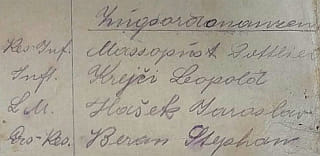 Zugsordonanzen
Res. Inf. Massopust Gottlieb
Inft. Krejči Leopold
L. M. Hašek Jaroslav
Ers. Res. Beran Stephan